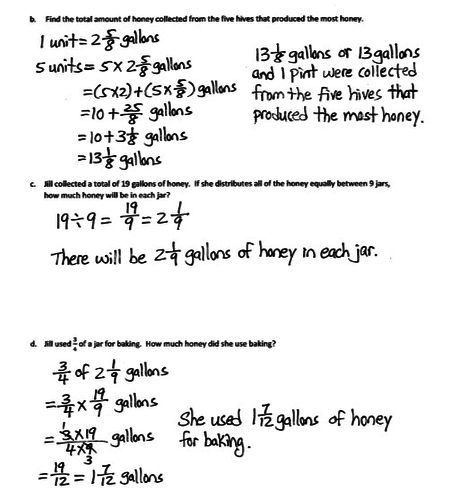 b. Find the total amount of honey collected from the five hives that produced the most honey.
1 unit = 2 5/8 gallons
5 units = 5 x 2 5/8 gallons
= (5x2) + (5 x 5/8) gallons
= 10 + 25/8 gallons
= 10 + 3 1/8 gallons
= 13 1/8 gallons
13 1/8 gallons or 13 gallons
and 1 pint were collected
from the five hives that
produced the most honey.
c. Jill collected a total of 19 gallons of honey. If she distributes all of the honey equally between 9 jars,
how much honey will be in each jar?
19 ÷ 9 = 19/9 = 2 1/9
There will be 2 1/9 gallons of honey in each jar.
d. Jill used 3/4 of a jar for baking. How much honey did she use baking?
3/4 of 2 1/9 gallons
= 3/4 x 19/9 gallons
= 1 3 x 19 / 4 x 9 3 gallons
= 19/12 = 1 7/12 gallons
She used 1 7/12 gallons of honey
for baking.